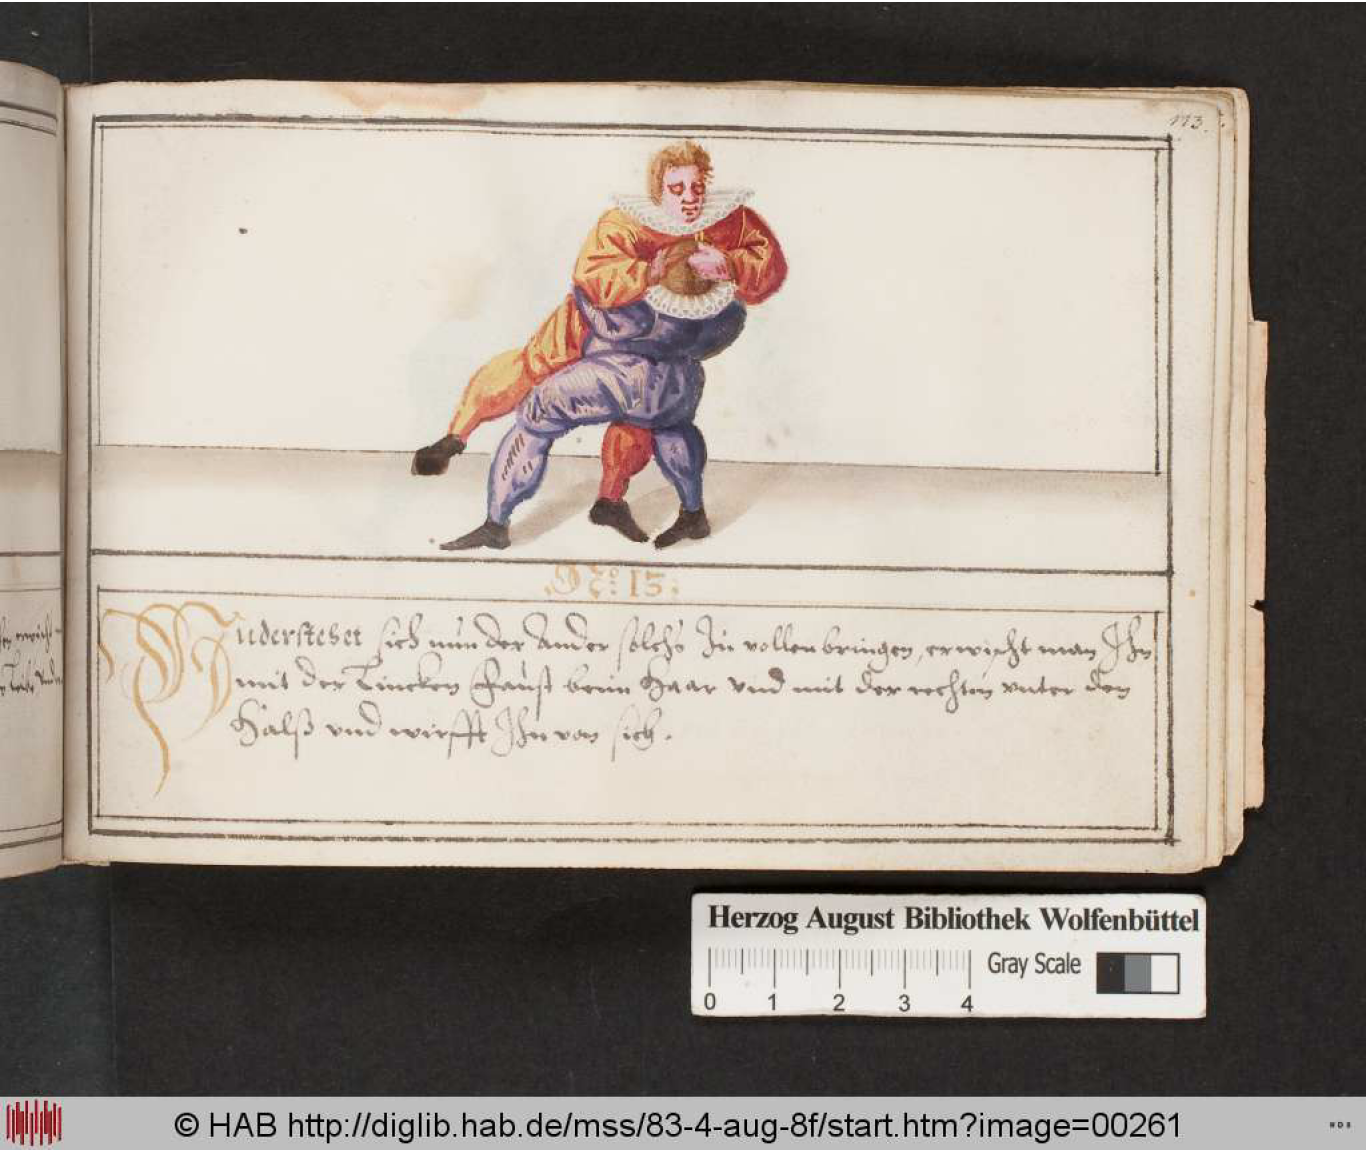 113.
No: 13:
Understehet sich nun der Ander solchs zu vollenbringen, erwischt man Ihn
mit der Lincken Faust beim Haar vnd mit der rechten vnter den
Halß vnd wirfft Ihn von sich.
Herzog August Bibliothek Wolfenbüttel
Gray Scale
0 1 2 3 4
© HAB http://diglib.hab.de/mss/83-4-aug-8f/start.htm?image=00261